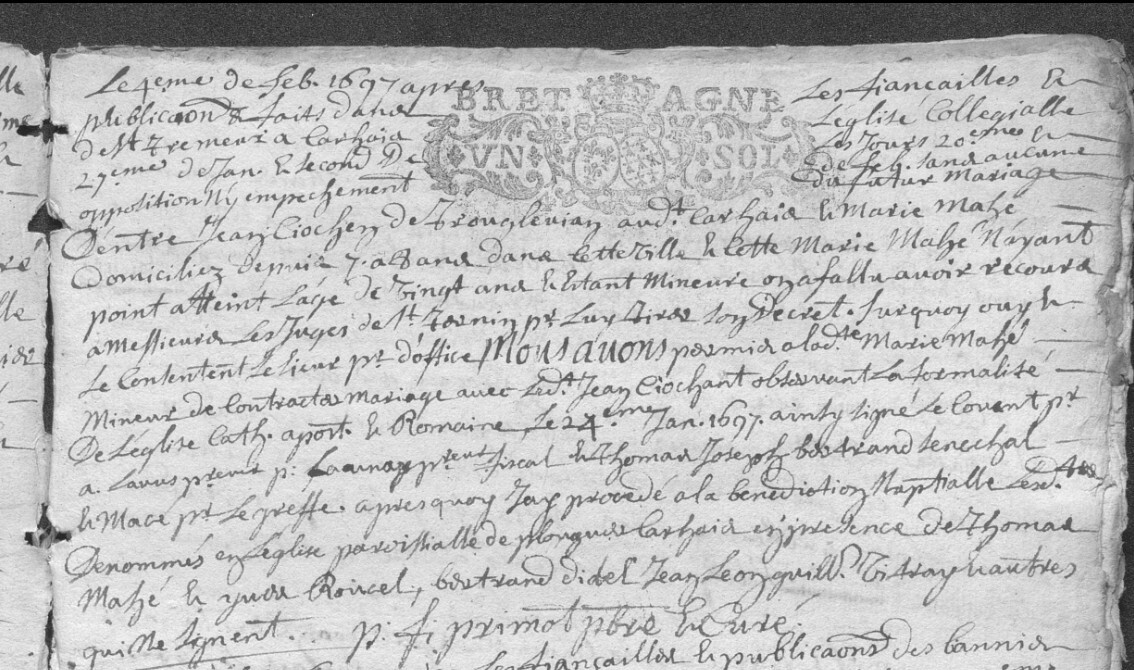 Le 4eme de feb. 1697 apres Les fiançailles &
BRETAGNE
publicaõns faits dans L'église Collegialle
de St Tremeur a Carhaix Les Jours 20eme &
VN SOL
27eme de Jan. & second De de feb. sans aucune
opposition Ny empechement du futur Mariage
Dentre Jean Ciochen de Trouglevian aud.t Carhaix & Marie Mahé
Domiciliez depuis 7. a 8 ans dans Cette Ville & Cette Marie Mahé N'ayant
point atteint L'age de Vingt ans & Estant Mineure on a fallu avoir recours
a Messieurs Les Juges de St pr Luy Decret. Surquoy ouy &
Le Consentent Le sieur pr d'office Nous avons permis a lad.te Marie Mahé
Mineur de Contracter mariage avec Led.t Jean Ciochant observant La formalité
De L'eglise Cath. apost. & Romaine, Le 24.eme Jan. 1697. ainsy signé Le Couent pr
a. p: Launay fiscal & Thomas Joseph bertrand senechal
& Macé pr Le greffe. apresquoy J'ay procedé a la benediction Nuptialle
Denommés en L'eglise paroissialle de plouguer Carhaix en presence de Thomas
Mahé & yves Roucel, bertrand didel Jean Leonquill. & autres
qui Ne signent... p: f: primot pbre & Curé.
Les fiançailles & publicaõns des bannies